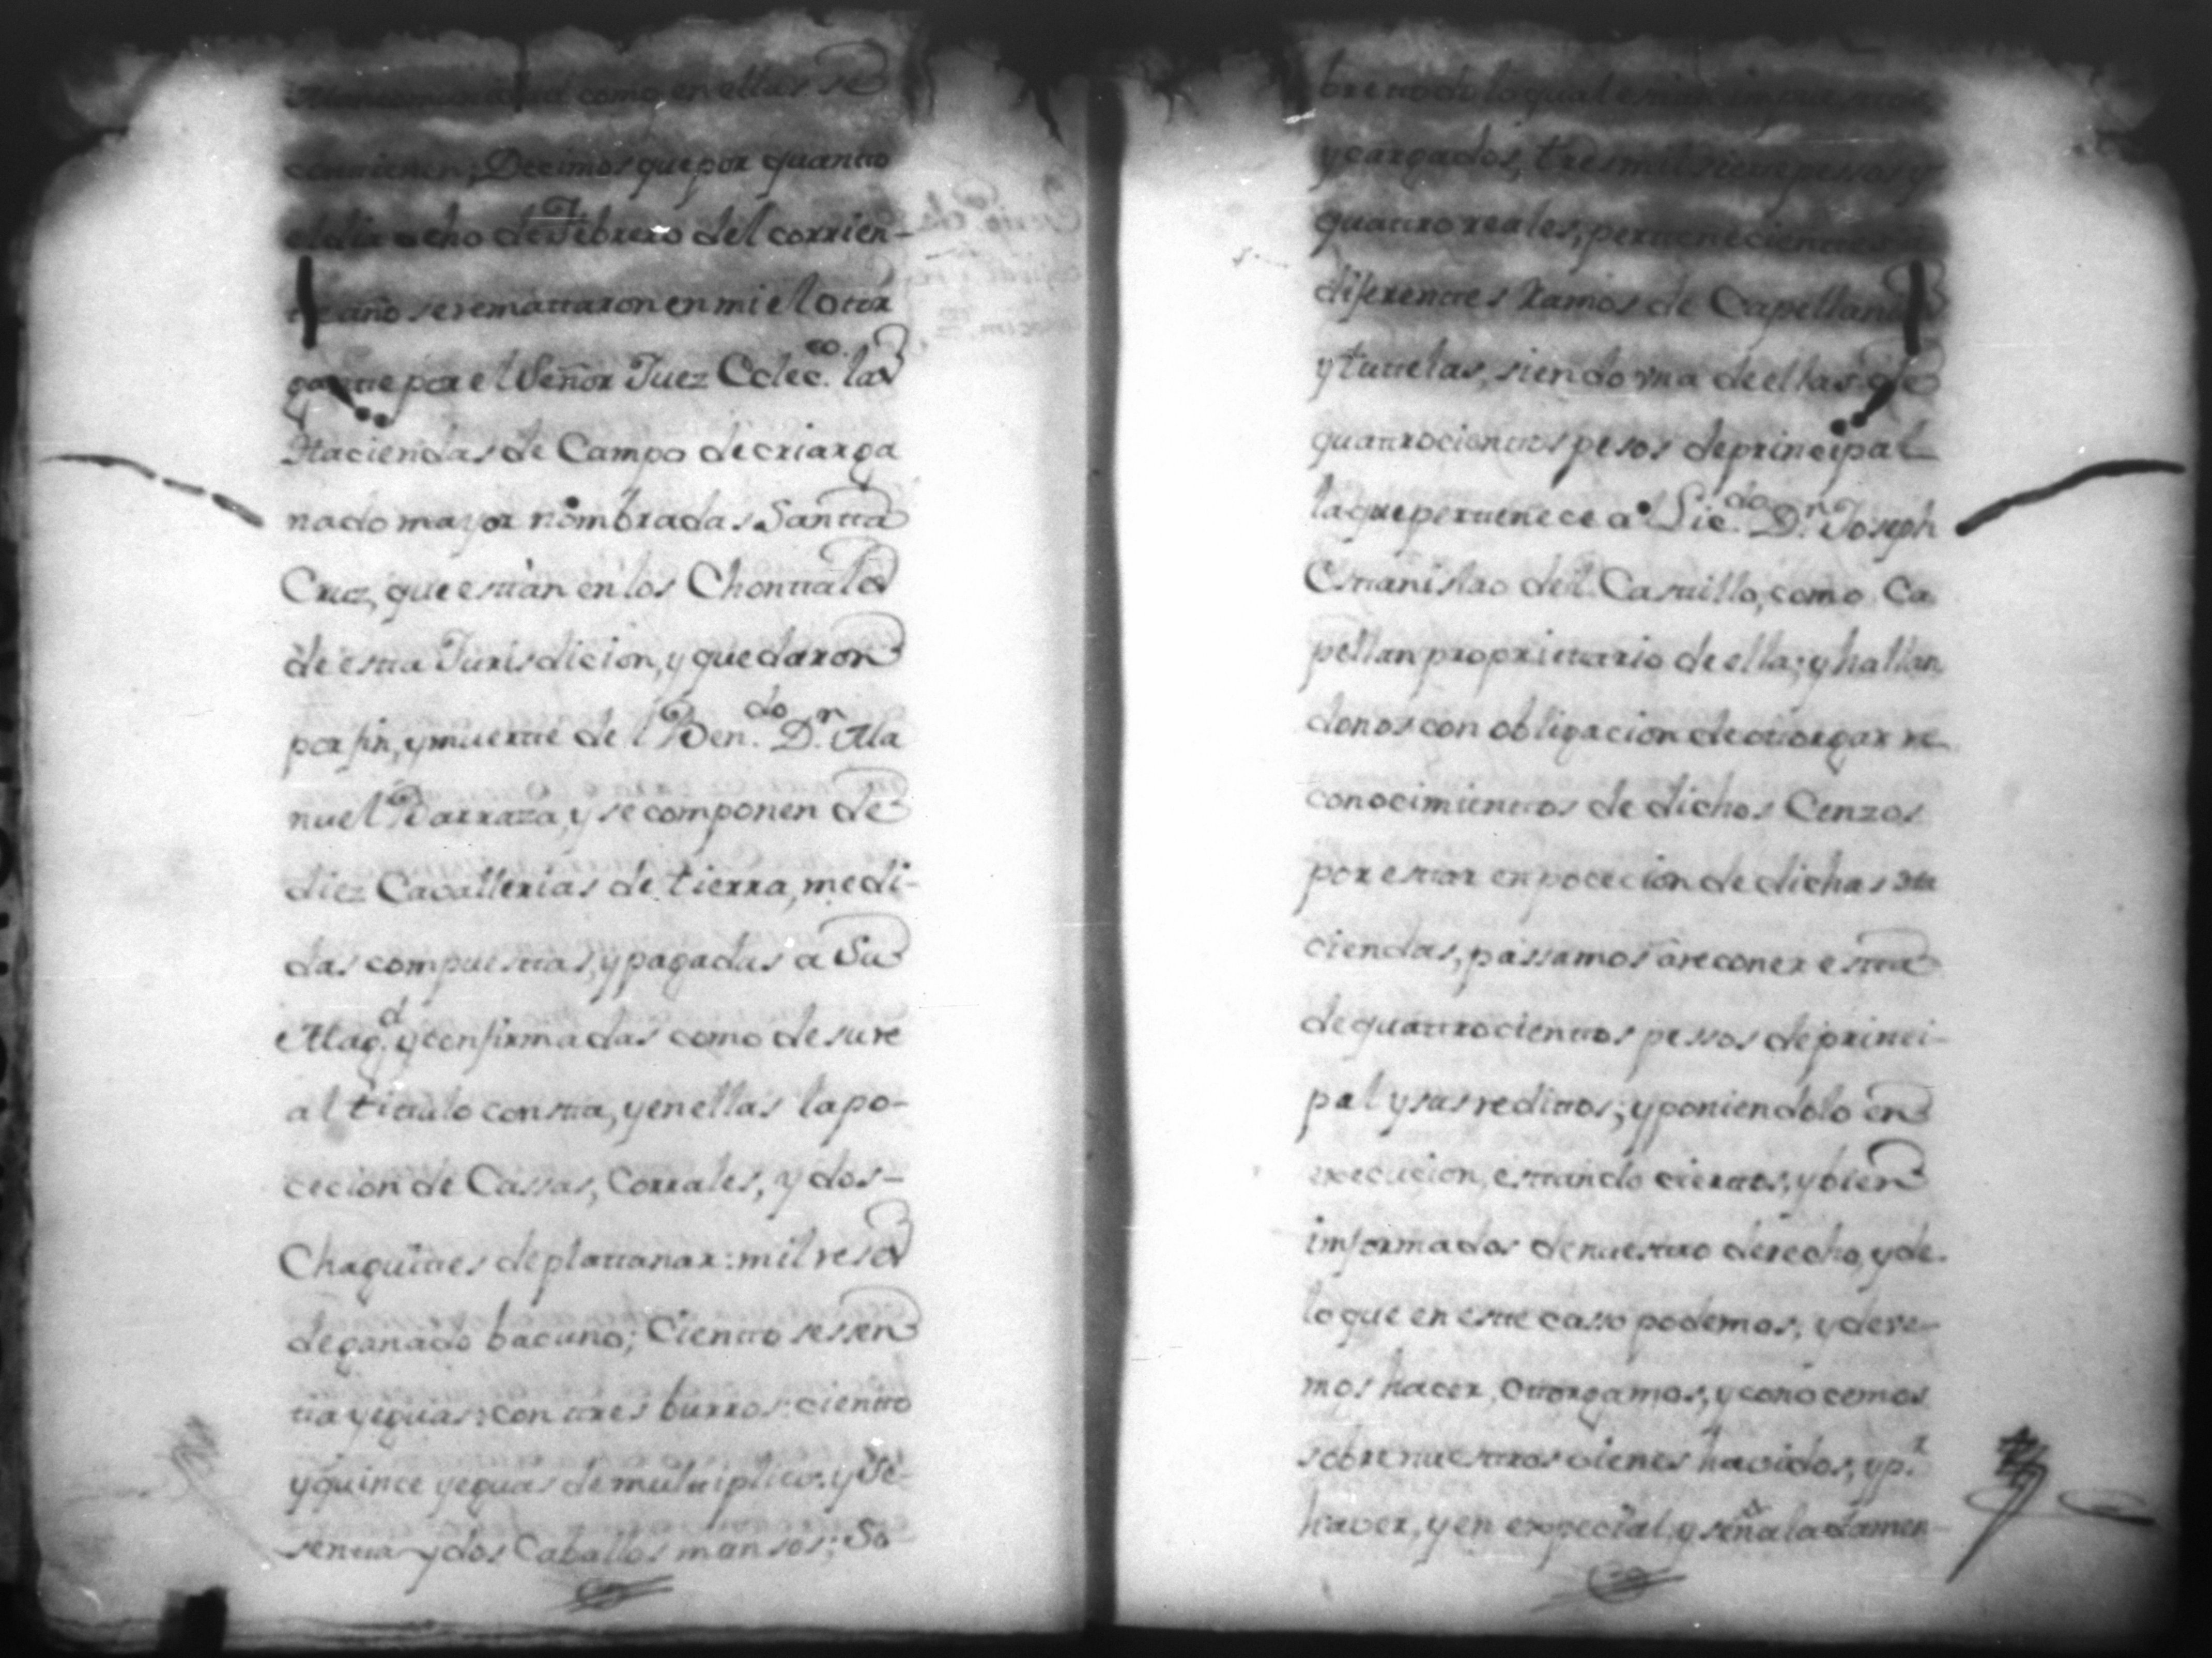 Mancomunidad como en ellas se
contienen; Decimos que por quanto
el dia ocho de Febrero del corrien-
te año se remattaron en mi el otor
gante por el Señor Juez Colec.co las
Haciendas de Campo de criar ga
nado mayor nombradas Santta
Cruz, que estàn en los Chonttales
de esta Jurisdicion, y quedaron
por fin, y muerte del Ben.do D.n Ma
nuel Barraza, y se componen de
diez Cavallerias de tierra, medi-
das compuestas, y pagadas a Su
Mag.d y confirmadas como de su re
al tittulo consta, y en ellas la po-
cecion de Cassas, Corrales, y dos-
Chaguittes de plattanar: mil reses
de ganado bacuno; Ciento sessen
tta yeguas: con tres burros: ciento
y quince yeguas de multtiplico: y se-
senta y dos Caballos mansos; So
bre todo lo qual estan impuestos
y cargados, tres mil siete pessos y
quattro reales, pertenecientes a
diferentes Ramos de Capellanias
y tutelas, siendo una de ellas de
quattrocientos pesos de principal
la que pertenece a el Lic.do D.n Joseph
Estanislao del Castillo, como Ca
pellan proprietario de ella; y hallan
donos con obligacion de otorgar re
conocimientos de dichos Cenzos
por estar en pocecion de dichas Ha
ciendas, passamos à reconer esta
de quattrocientos pessos de princi-
pal y sus redittos; y poniendolo en
execucion, estando ciertos, y bien
informados de nuestro derecho, y de
lo que en este casso podemos, y deve-
mos hacer, Otorgamos, y conocemos
sobre nuestros vienes havidos, y p.r
haver, y en expecial, y señaladamen-